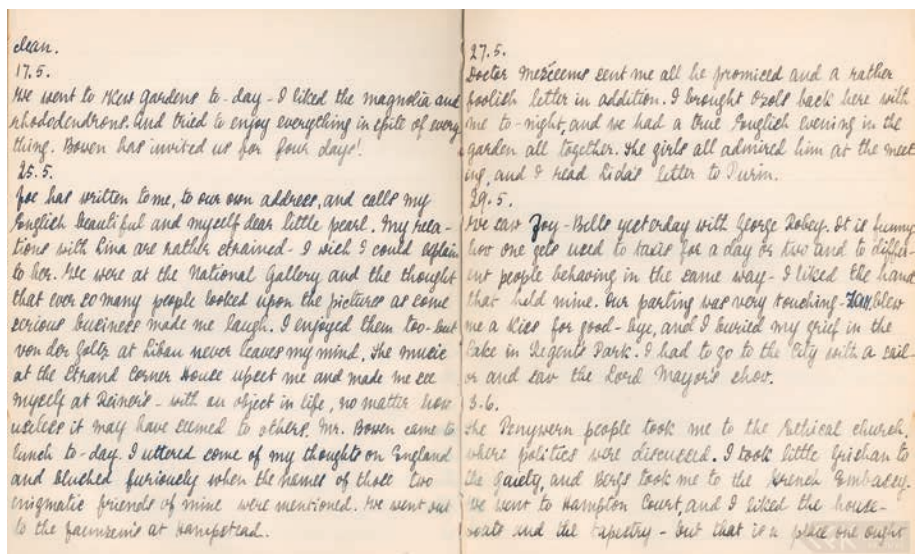 clean.
17.5.
We went to Kew Gardens to-day - I liked the magnolia and
rhododendrons. and tried to enjoy everything in spite of every
thing. Bowen has invited us for four days!
25.5.
Joe has written to me, to our own address, and calls my
English beautiful and myself dear little pearl. My rela-
tions with Lina are rather strained - I wish I could explain
to her. We were at the National Gallery and the thought
that ever so many people looked upon the pictures as some
serious business made me laugh. I enjoyed them too - but
von der Goltz at Libau never leaves my mind. The music
at the Strand Corner House upset me and made me see
myself at Reiner's - with an object in life, no matter how
useless it may have seemed to others. Mr. Bowen came to
lunch to-day. I uttered some of my thoughts on England
and blushed furiously when the names of those two
enigmatic friends of mine were mentioned. We went out
to the at Hampstead.
27.5.
Doctor sent me all he promised and a rather
foolish letter in addition. I brought Ozols back here with
me to-night, and we had a true English evening in the
garden all together. The girls all admired him at the meet
ing, and I read Lida's letter to Purin.
29.5.
We saw Joy-Bells yesterday with George Robey. It is funny
how one gets used to taxis for a day or two and to differ-
ent people behaving in the same way - I liked the hand
that held mine. Our parting was very touching - blew
me a kiss for good-bye, and I buried my grief in the
lake in Regent's Park. I had to go to the City with a sail-
or and saw the Lord Mayor's show.
3.6.
The Penywern people took me to the Ethical church,
where politics were discussed. I took little Grishan to
the Gaiety, and Bergs took me to the French Embassy.
We went to Hampton Court, and I liked the house-
boats and the tapestry - but that is a place one ought